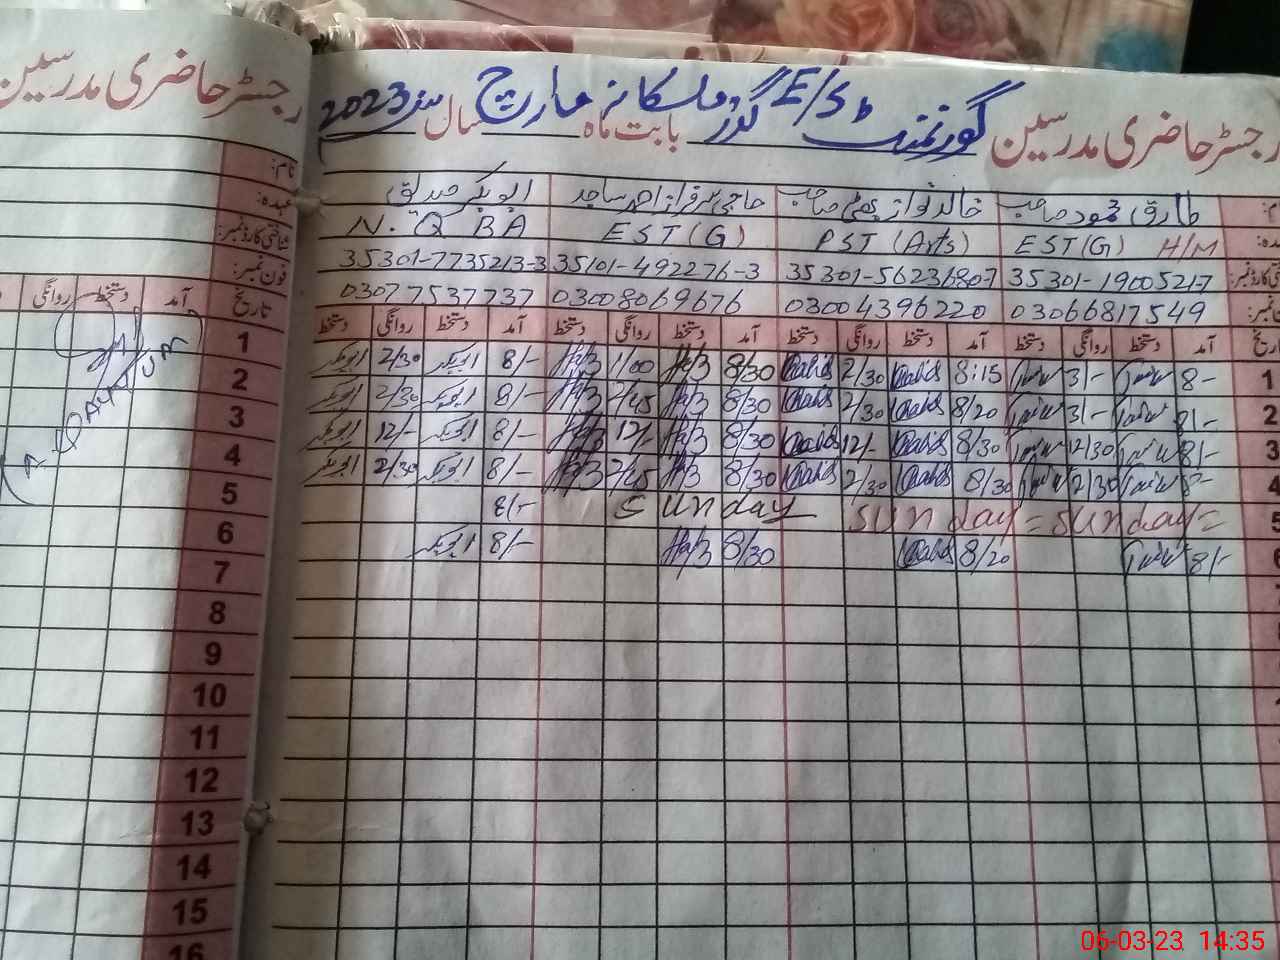 رجسٹر حاضری مدرسین گورنمنٹ E/S گرلز ملکانہ بابت ماہ مارچ سال 2023
طارق محمود صاحب خالد نواز بھٹی صاحب حاجی سرفراز احمد ساجد ابوبکر صدیق
EST(G) H/M PST (Arts) EST(G) N. Q BA
35301-19005217 35301-56236807 35101-492276-3 35301-7735213-3
03066817549 03004396220 03008069676 03077537737
تاریخ آمد دستخط روانگی دستخط آمد دستخط روانگی دستخط آمد دستخط روانگی دستخط آمد دستخط روانگی دستخط
1 8- 3/- 8:15 Khalid 2/30 Khalid 8/30 1/00 8/- ابوبکر 2/30 ابوبکر
2 8/- 3/- 8/20 Khalid 2/30 Khalid 8/30 2/45 8/- ابوبکر 2/30 ابوبکر
3 8/- 12/30 8/30 Khalid 12/- Khalid 8/30 12/- 8/- ابوبکر 12/- ابوبکر
4 8- 2/30 8/30 Khalid 2/30 Khalid 8/30 2/45 8/- ابوبکر 2/30 ابوبکر
5 Sunday = Sunday = Sunday 8/-
6 8/- 8/20 Khalid 8/30 8/- ابوبکر
رجسٹر حاضری مدرسین
نام:
عہدہ:
شناختی کارڈ نمبر:
فون نمبر:
تاریخ آمد دستخط روانگی
1
2
3
4
5
6
7
8
9
10
11
12
13
14
15
16
06-03-23 14:35